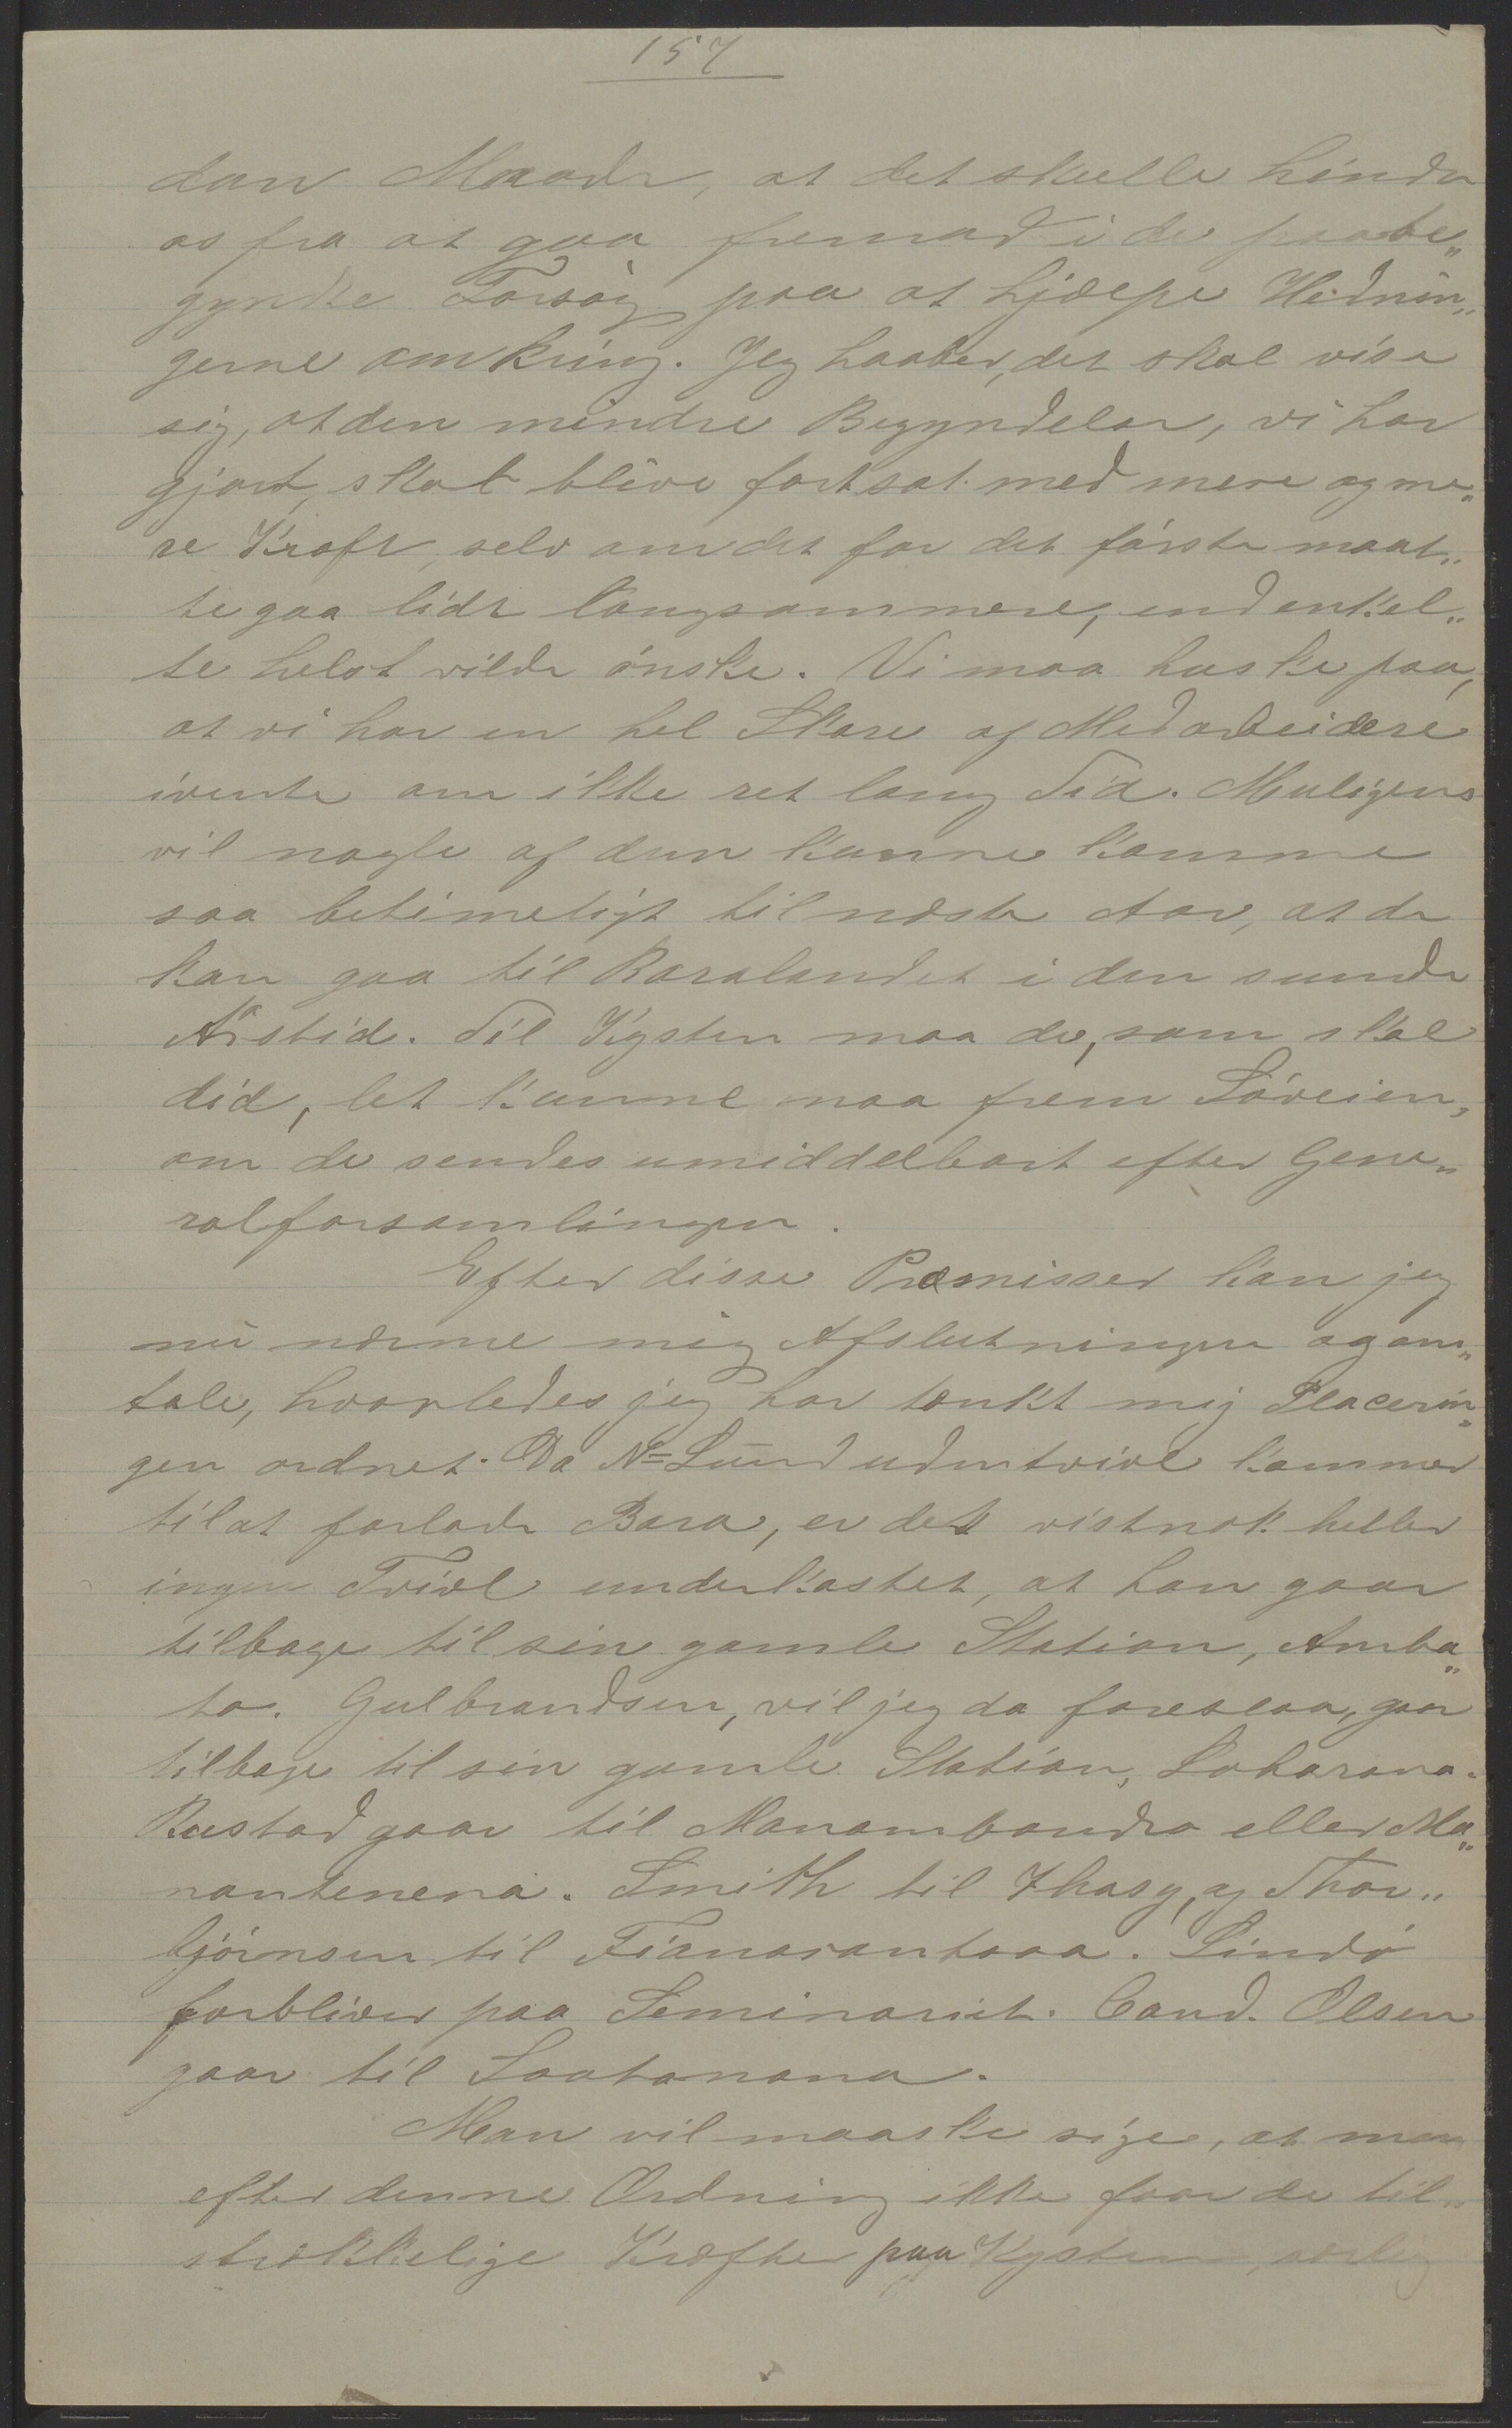 157
dan Maade, at det skulle hindre
os fra at gaa fremad i de paabe„
gyndte Forsøg paa at hjælpe Hednin„
gerne omkring. Jeg haaber, det skal vise
sig, at den mindre Begyndelse, vi har
gjort, skal blive fortsat med mere og me„
re Kraft, selv om det for det første maat„
te gaa lidt langsommere, end enkel„
te helst vilde ønske. Vi maa huske paa,
at vi har en hel Skare af Medarbeidere
ivente om ikke ret lang Tid. Muligens
vil nogle af dem kunne komme
saa betimeligt til næste Aar, at de
kan gaa til Baralandet i den sunde
Årstid. Til Kysten maa de, som skal
did, let kunne naa frem Søveien,
om de sendes umiddelbart efter Gene„
ralforsamlingen.
Efter disse Præmisser kan jeg
nu nærme mig Afslutningen og om„
tale, hvorledes jeg har tænkt mig Placerin„
gen ordnet. Da N=Lund udentvivl kommer
til at forlade Bara, er det vistnok heller
ingen Tvivl underkastet, at han gaar
tilbage til sin gamle Station, Amba„
to. Gulbrandsen, vil jeg da foreslaa, gaar
tilbage til sin gamle Station, Soharana.
Rustad gaar til Manambondro eller Ma„
nantenena. Smith til Ihasy, og Thor„
bjørnsen til Fianarantsoa. Lindø
forbliver paa Seminariet. Cand. Olsen
gaar til Soatanana.
Man vil maaske sige, at man
efter denne Ordning ikke faar de til„
strækkelige Kræfter paa Kysten, særlig